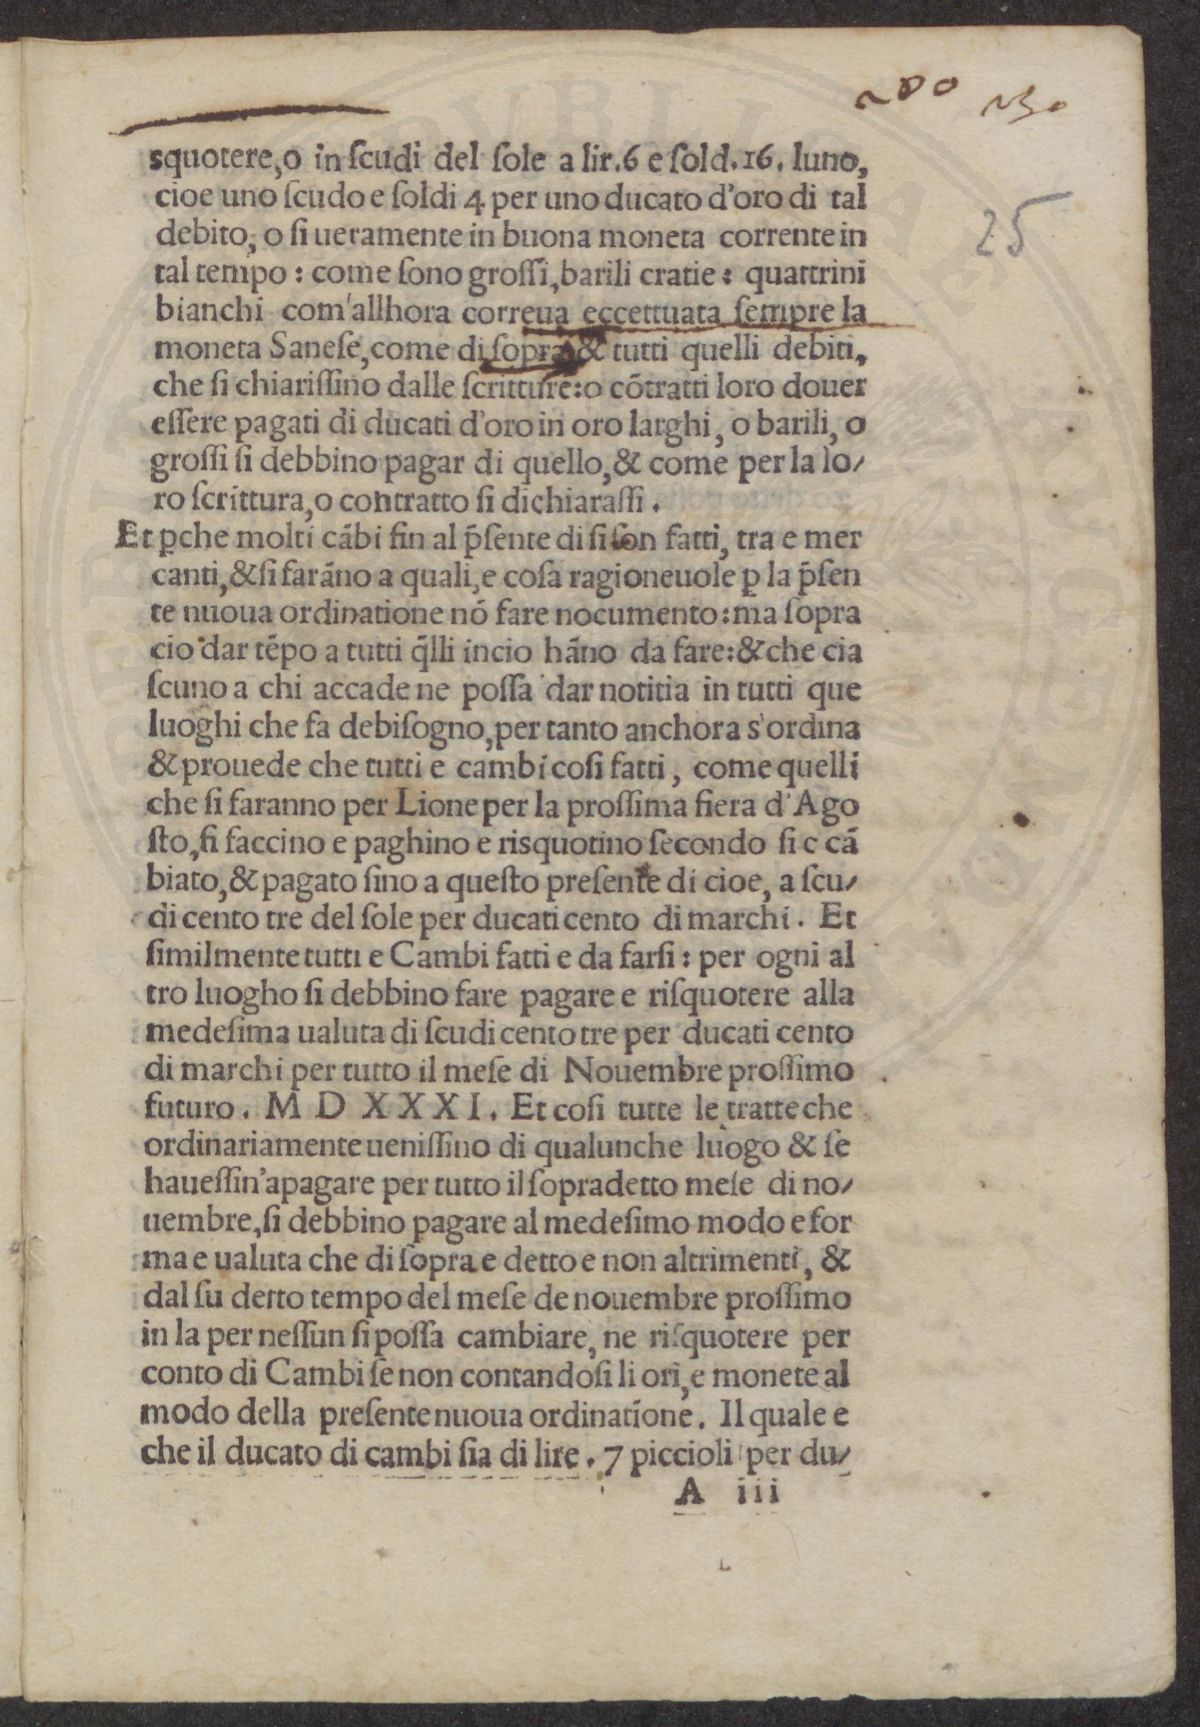 25
squotere, o in scudi del sole a lir. 6 e sold. 16. luno,
cioe uno scudo e soldi 4 per uno ducato d'oro di tal
debito, o si ueramente in buona moneta corrente in
tal tempo : come sono grossi, barili cratie : quattrini
bianchi com'allhora correua eccettuata sempre la
moneta Sanese, come di sopra & tutti quelli debiti,
che si chiarissino dalle scritture : o cõtratti loro douer
essere pagati di ducati d'oro in oro larghi, o barili, o
grossi si debbino pagar di quello, & come per la lo/
ro scrittura, o contratto si dichiarassi.
Et ꝑche molti cãbi fin al p̃sente di si son fatti, tra e mer
canti, & si farãno a quali, e cosa ragioneuole ꝑ la p̃sen
te nuoua ordinatione nõ fare nocumento : ma sopra
cio dar tẽpo a tutti q̃lli incio hãno da fare : & che cia
scuno a chi accade ne possa dar notitia in tutti que
luoghi che fa debisogno, per tanto anchora s'ordina
& prouede che tutti e cambi cosi fatti, come quelli
che si faranno per Lione per la prossima fiera d'Ago
sto, si faccino e paghino e risquotino secondo si c cã
biato, & pagato sino a questo presente di cioe, a scu/
di cento tre del sole per ducati cento di marchi. Et
similmente tutti e Cambi fatti e da farsi : per ogni al
tro luogho si debbino fare pagare e risquotere alla
medesima ualuta di scudi cento tre per ducati cento
di marchi per tutto il mese di Nouembre prossimo
futuro. M D X X X I. Et cosi tutte le tratte che
ordinariamente uenissino di qualunche luogo & se
hauessin'apagare per tutto il sopradetto mese di no/
uembre, si debbino pagare al medesimo modo e for
ma e ualuta che di sopra e detto e non altrimenti, &
dal su detto tempo del mese de nouembre prossimo
in la per nessun si possa cambiare, ne risquotere per
conto di Cambi se non contandosi li ori, e monete al
modo della presente nuoua ordinatione. Il quale e
che il ducato di cambi sia di lire. 7 piccioli per du/
A iii